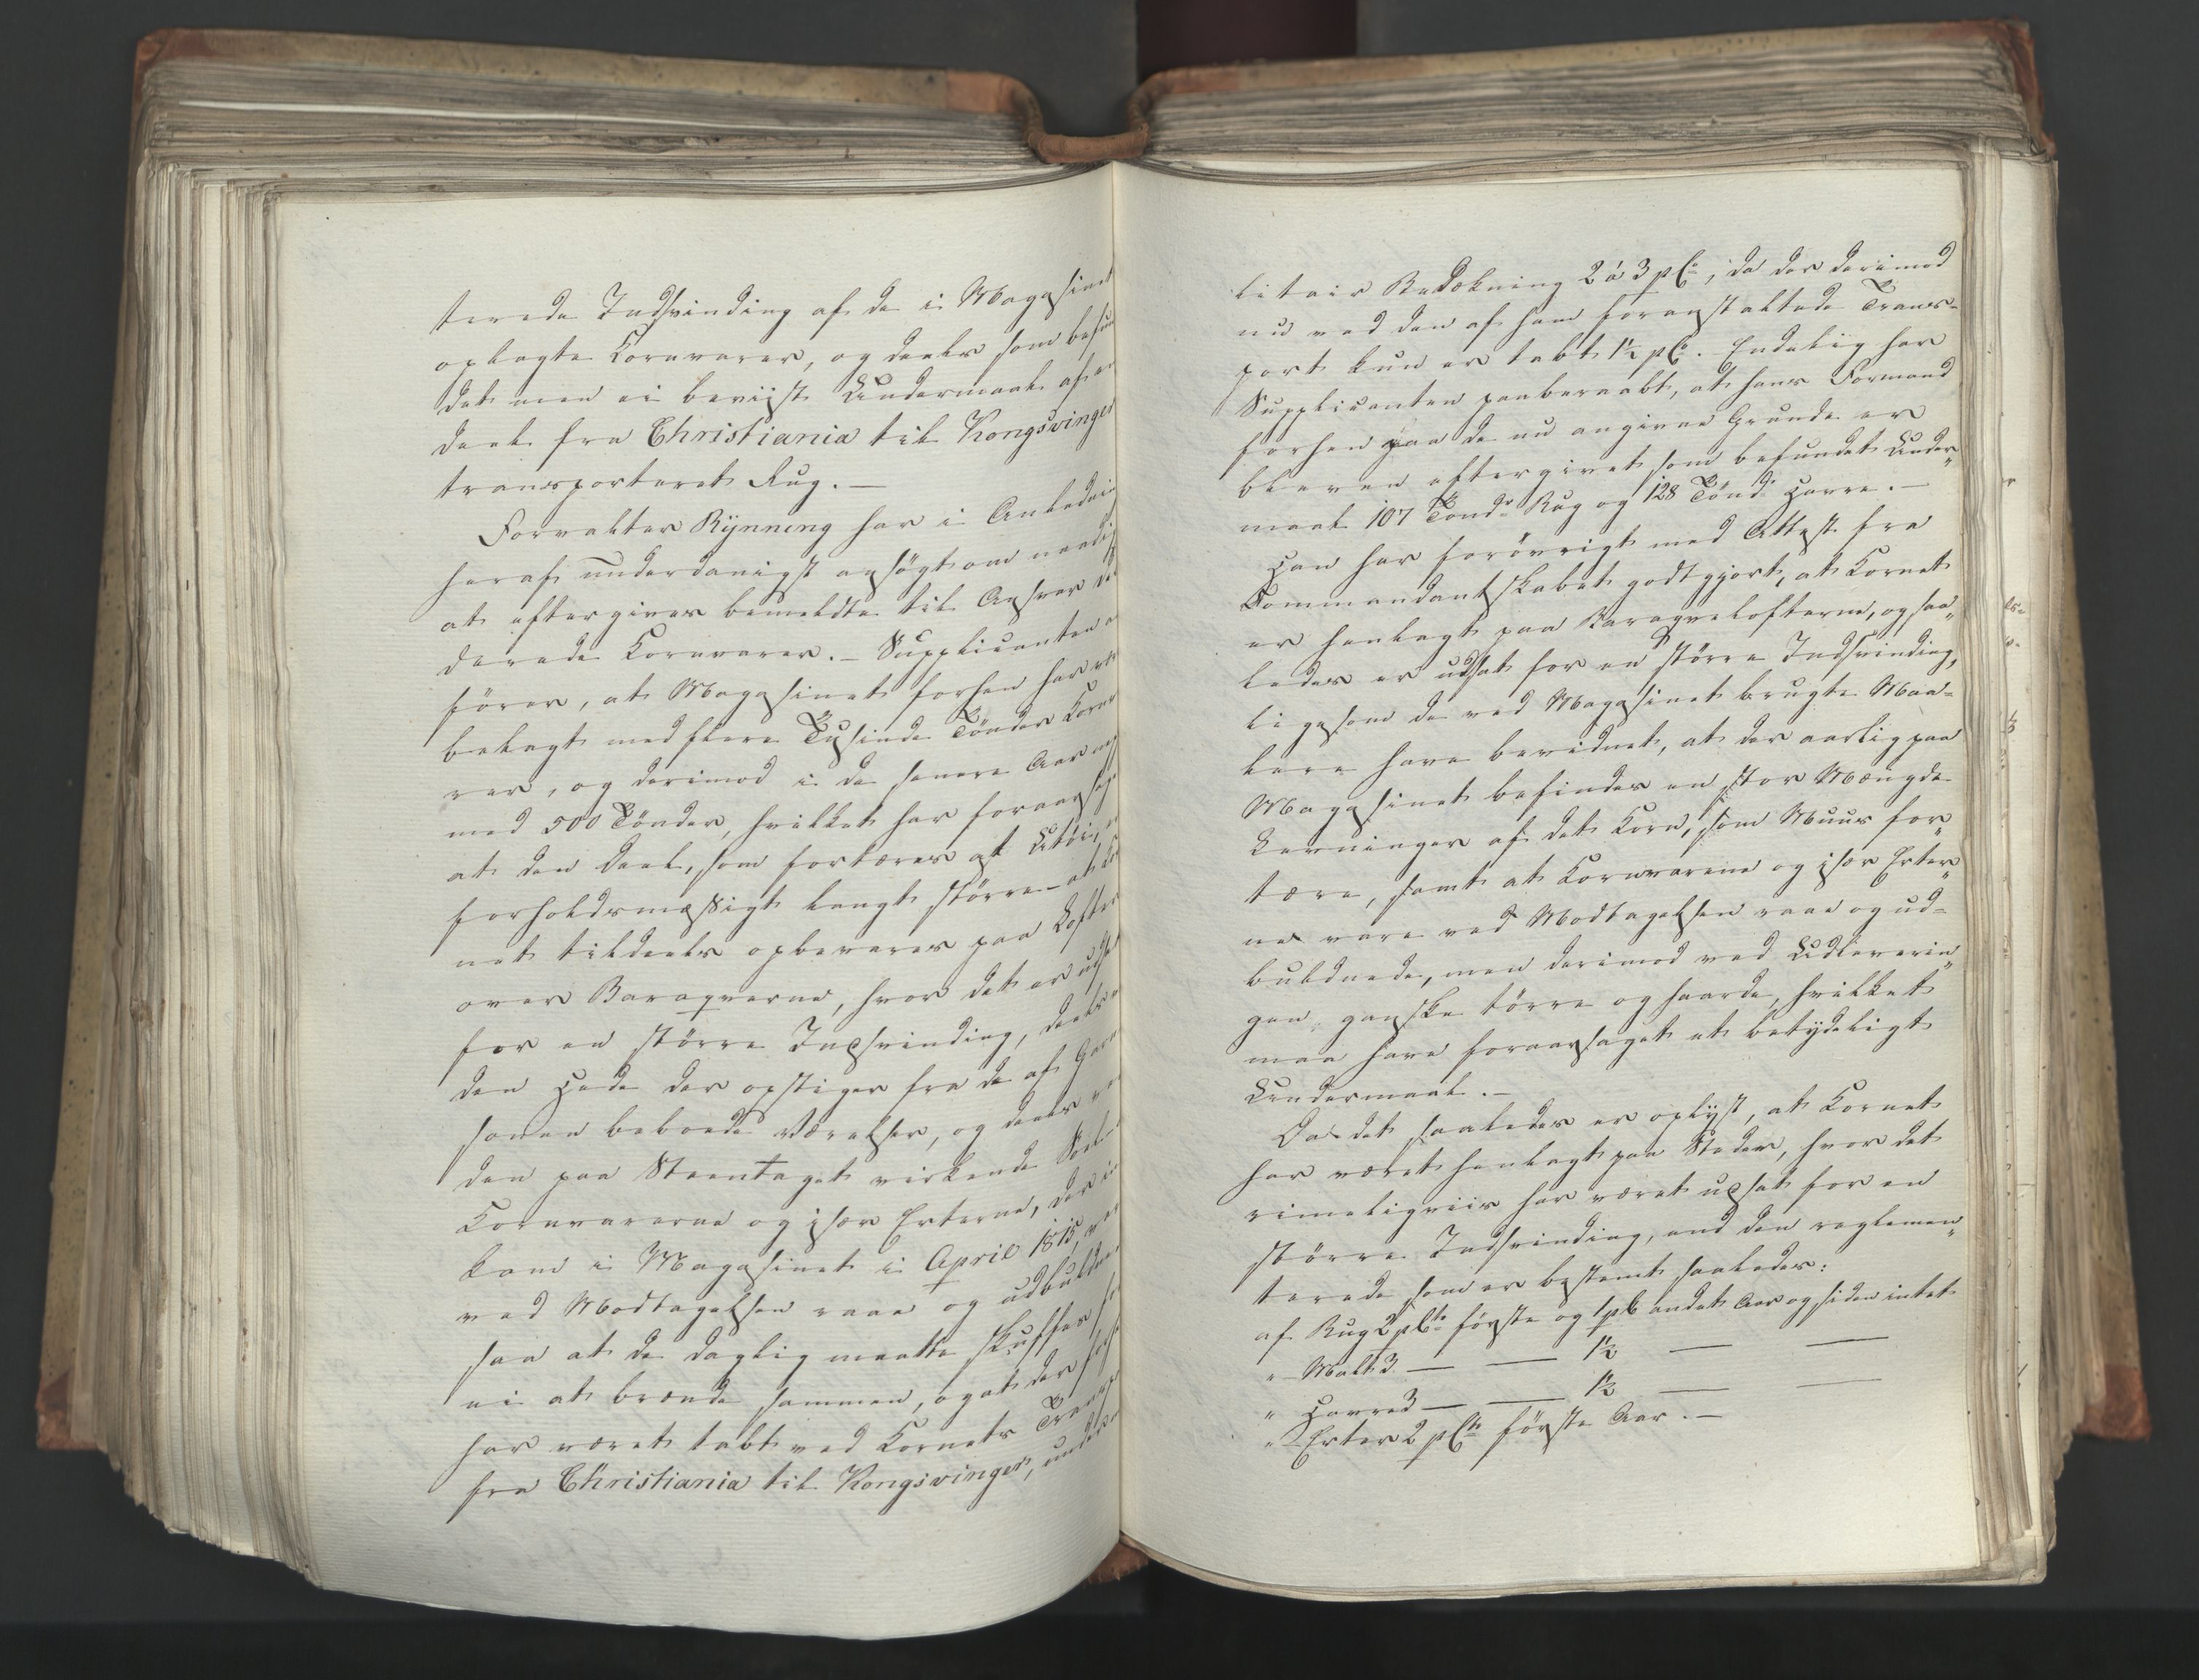 terede Indsvinding af de i Magasinet
oplagte Kornvarer, og deels som befun
det men ei beviist Undermaal af en
deel fra Christiania til Kongsvinger
transporteret Rug. —
Forvalter Rÿnning har i Anledning
heraf underdanigst ansøgt om naadigst
at eftergives bemeldte til Ansvar
derede Kornvarer. — Supplicanten
fører, at Magasinet forhen har
belagt med flere Tusinde Tönder Korn
rer, og derimod i de senere Aar
med 500 Tönder, hvilket har foraarsaget
at den Deel, som fortæres af Utöi, er
forholdsmæssigt langt större — at
net tildeels opbevares paa Lofter
over Baraqverne, hvor det er udsat
for en större Indsvinding, deels
den Hede der opstiger fra de af Garni
sonen beboede Værelser, og deels
den paa Steentaget virkende Soel —
Kornvarerne og især Erterne, der
kom i Magasinet i April 1815,
ved Modtagelsen raae og udbuldnede
saa at de daglig maatte skuffes for
ei at brænde sammen, og at der
har været tabt ved Kornets Transport
fra Christiania til Kongsvinger, under
litair Bedækning 2 à 3 pCt, da der derimod
nu ved den af ham foranstaltede Trans-
port kun er tabt 1½ pCt. Endelig har
Supplicanten paaberaabt, at hans Formand
forhen paa de nu angivne Grunde er
bleven eftergivet som befundet Under„
maal 107 Tönd. Rug og 128 Tönd. Havre. —
Han har forövrigt med Attest fra
Commandantskabet godtgjort, at Kornet
er henlagt paa Baraqvelofterne, og saa„
ledes er udsat for en större Indsvinding,
ligesom de ved Magasinet brugte Maa-
lere have bevidnet, at der aarlig paa
Magasinet befindes en stor Mængde
Levninger af det Korn, som Muus for„
tære, samt at Kornvarene og især Erter„
ne vare ved Modtagelsen raae og ud-
buldnede, men derimod ved Udleverin„
gen, ganske törre og haarde, hvilket
maa have foraarsaget et betydeligt
Undermaal. —
Da det saaledes er oplyst, at Kornet
har været henlagt paa Steder, hvor det
rimeligviis har været udsat for en
större Indsvinding, end den reglemen„
terede som er bestemt saaledes:
af Rug 2 pCto förste og 1 pC andet Aar og siden intet
„ Malt 3 — — 1½ — —
„ Havre 3 — — 1½ — —
„ Erter 2 pCto förste Aar. —